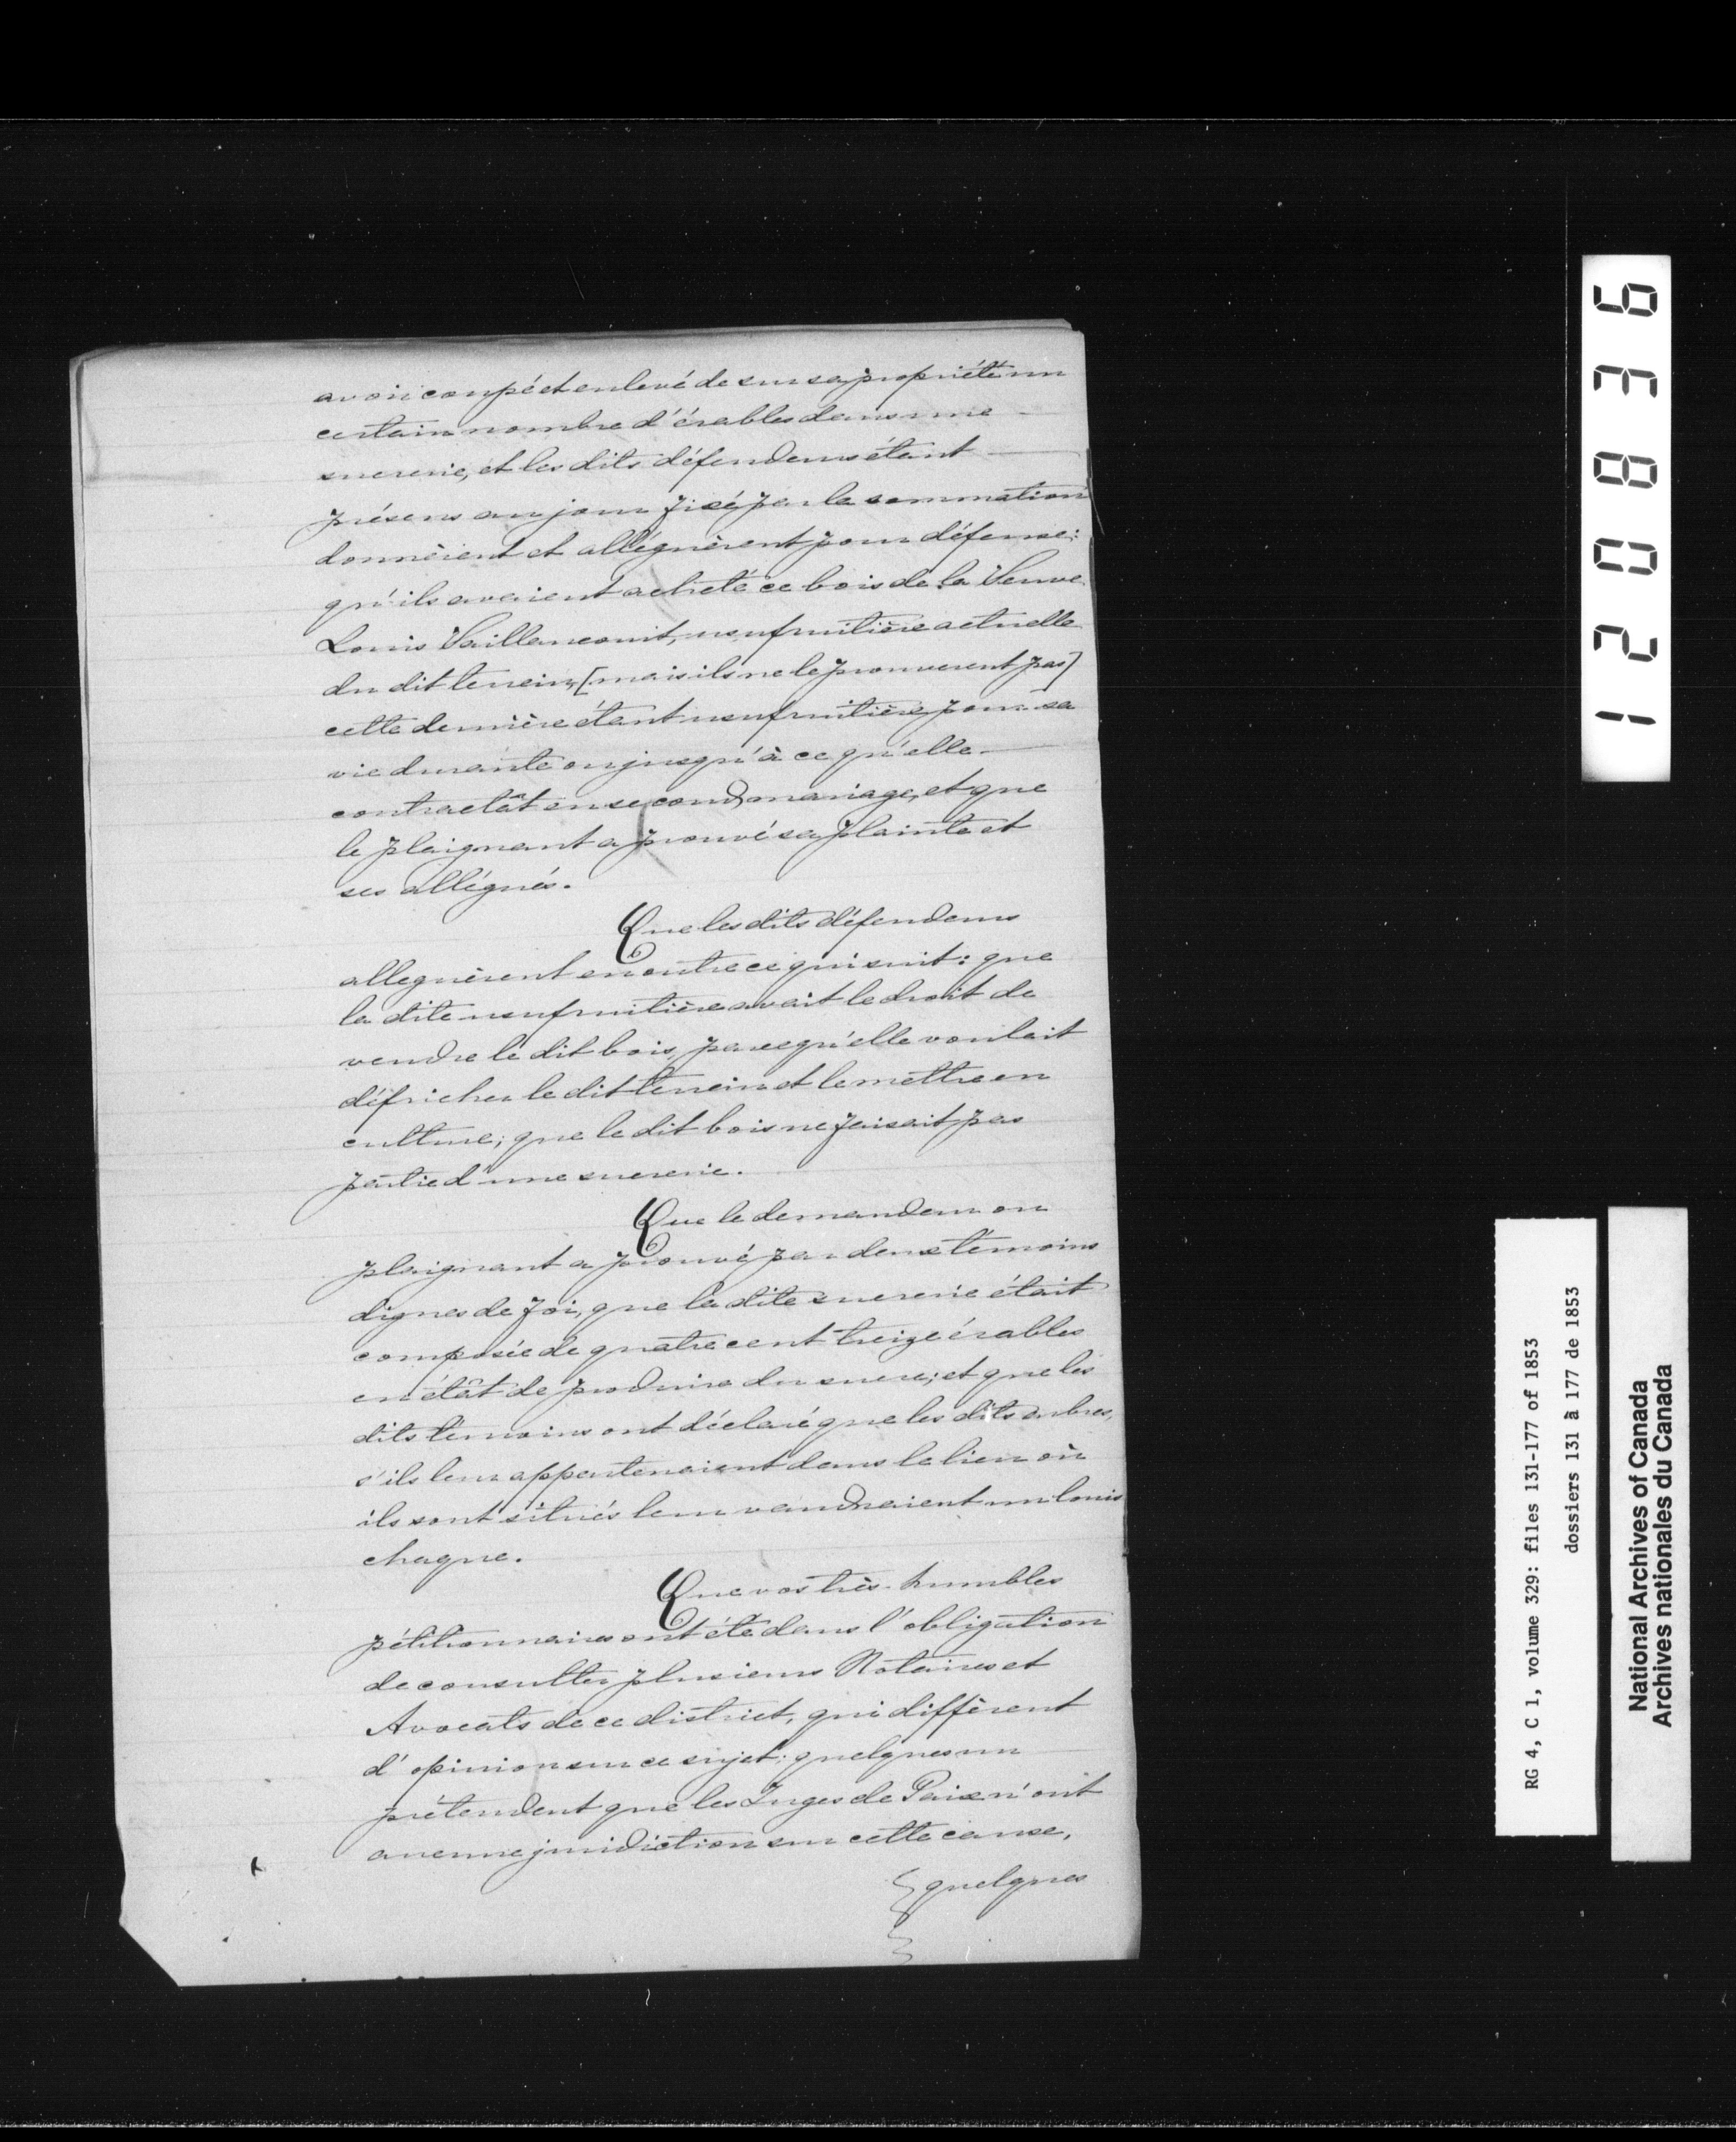 avoir coupé et enlevé de sur sa propriété un
certain nombre d'érables dans une
sucrerie, et les dits défendeurs étant
présens au jour fixé par la sommation
donnèrent et alléguèrent pour défense:
qu'ils avaient acheté ce bois de la Veuve
Louis Vaillancourt, usufruitière actuelle
du dit terrein, [mais ils ne le prouverent pas]
cette dernière étant usufruitière pour sa
vie durante ou jusqu'à ce qu'elle
contractât en second mariage, et que
le plaignant a prouvé sa plainte et
ses allégués.
Que les dits défendeurs
alleguèrent en outre ce qui suit: que
la dite usufruitière avait le droit de
vendre le dit bois, parcequ'elle voulait
défricher le dit terrein et le mettre en
culture; que le dit bois ne faisait pas
partie d'une sucrerie.
Que le demandeur ou
plaignant a prouvé par deux témoins
dignes de foi, que la dite sucrerie était
composée de quatre cent treize érables
en étât de produire du sucre; et que les
dits témoins ont déclaré que les dits arbres,
s'ils leur appartenaient dans le lieu où
ils sont situés leur vaudraient un louis
chaque.
Que vos très-humbles
pétitionnaires ont été dans l'obligation
de consulter plusieurs Notaires et
Avocats de ce district, qui diffèrent
d'opinion sur ce sujet: quelques un
prétendent que les Juges de Paix n'ont
aucune juridiction sur cette cause,
quelques
120836
RG 4, C 1, volume 329: files 131-177 of 1853
dossiers 131 à 177 de 1853
National Archives of Canada
Archives nationales du Canada